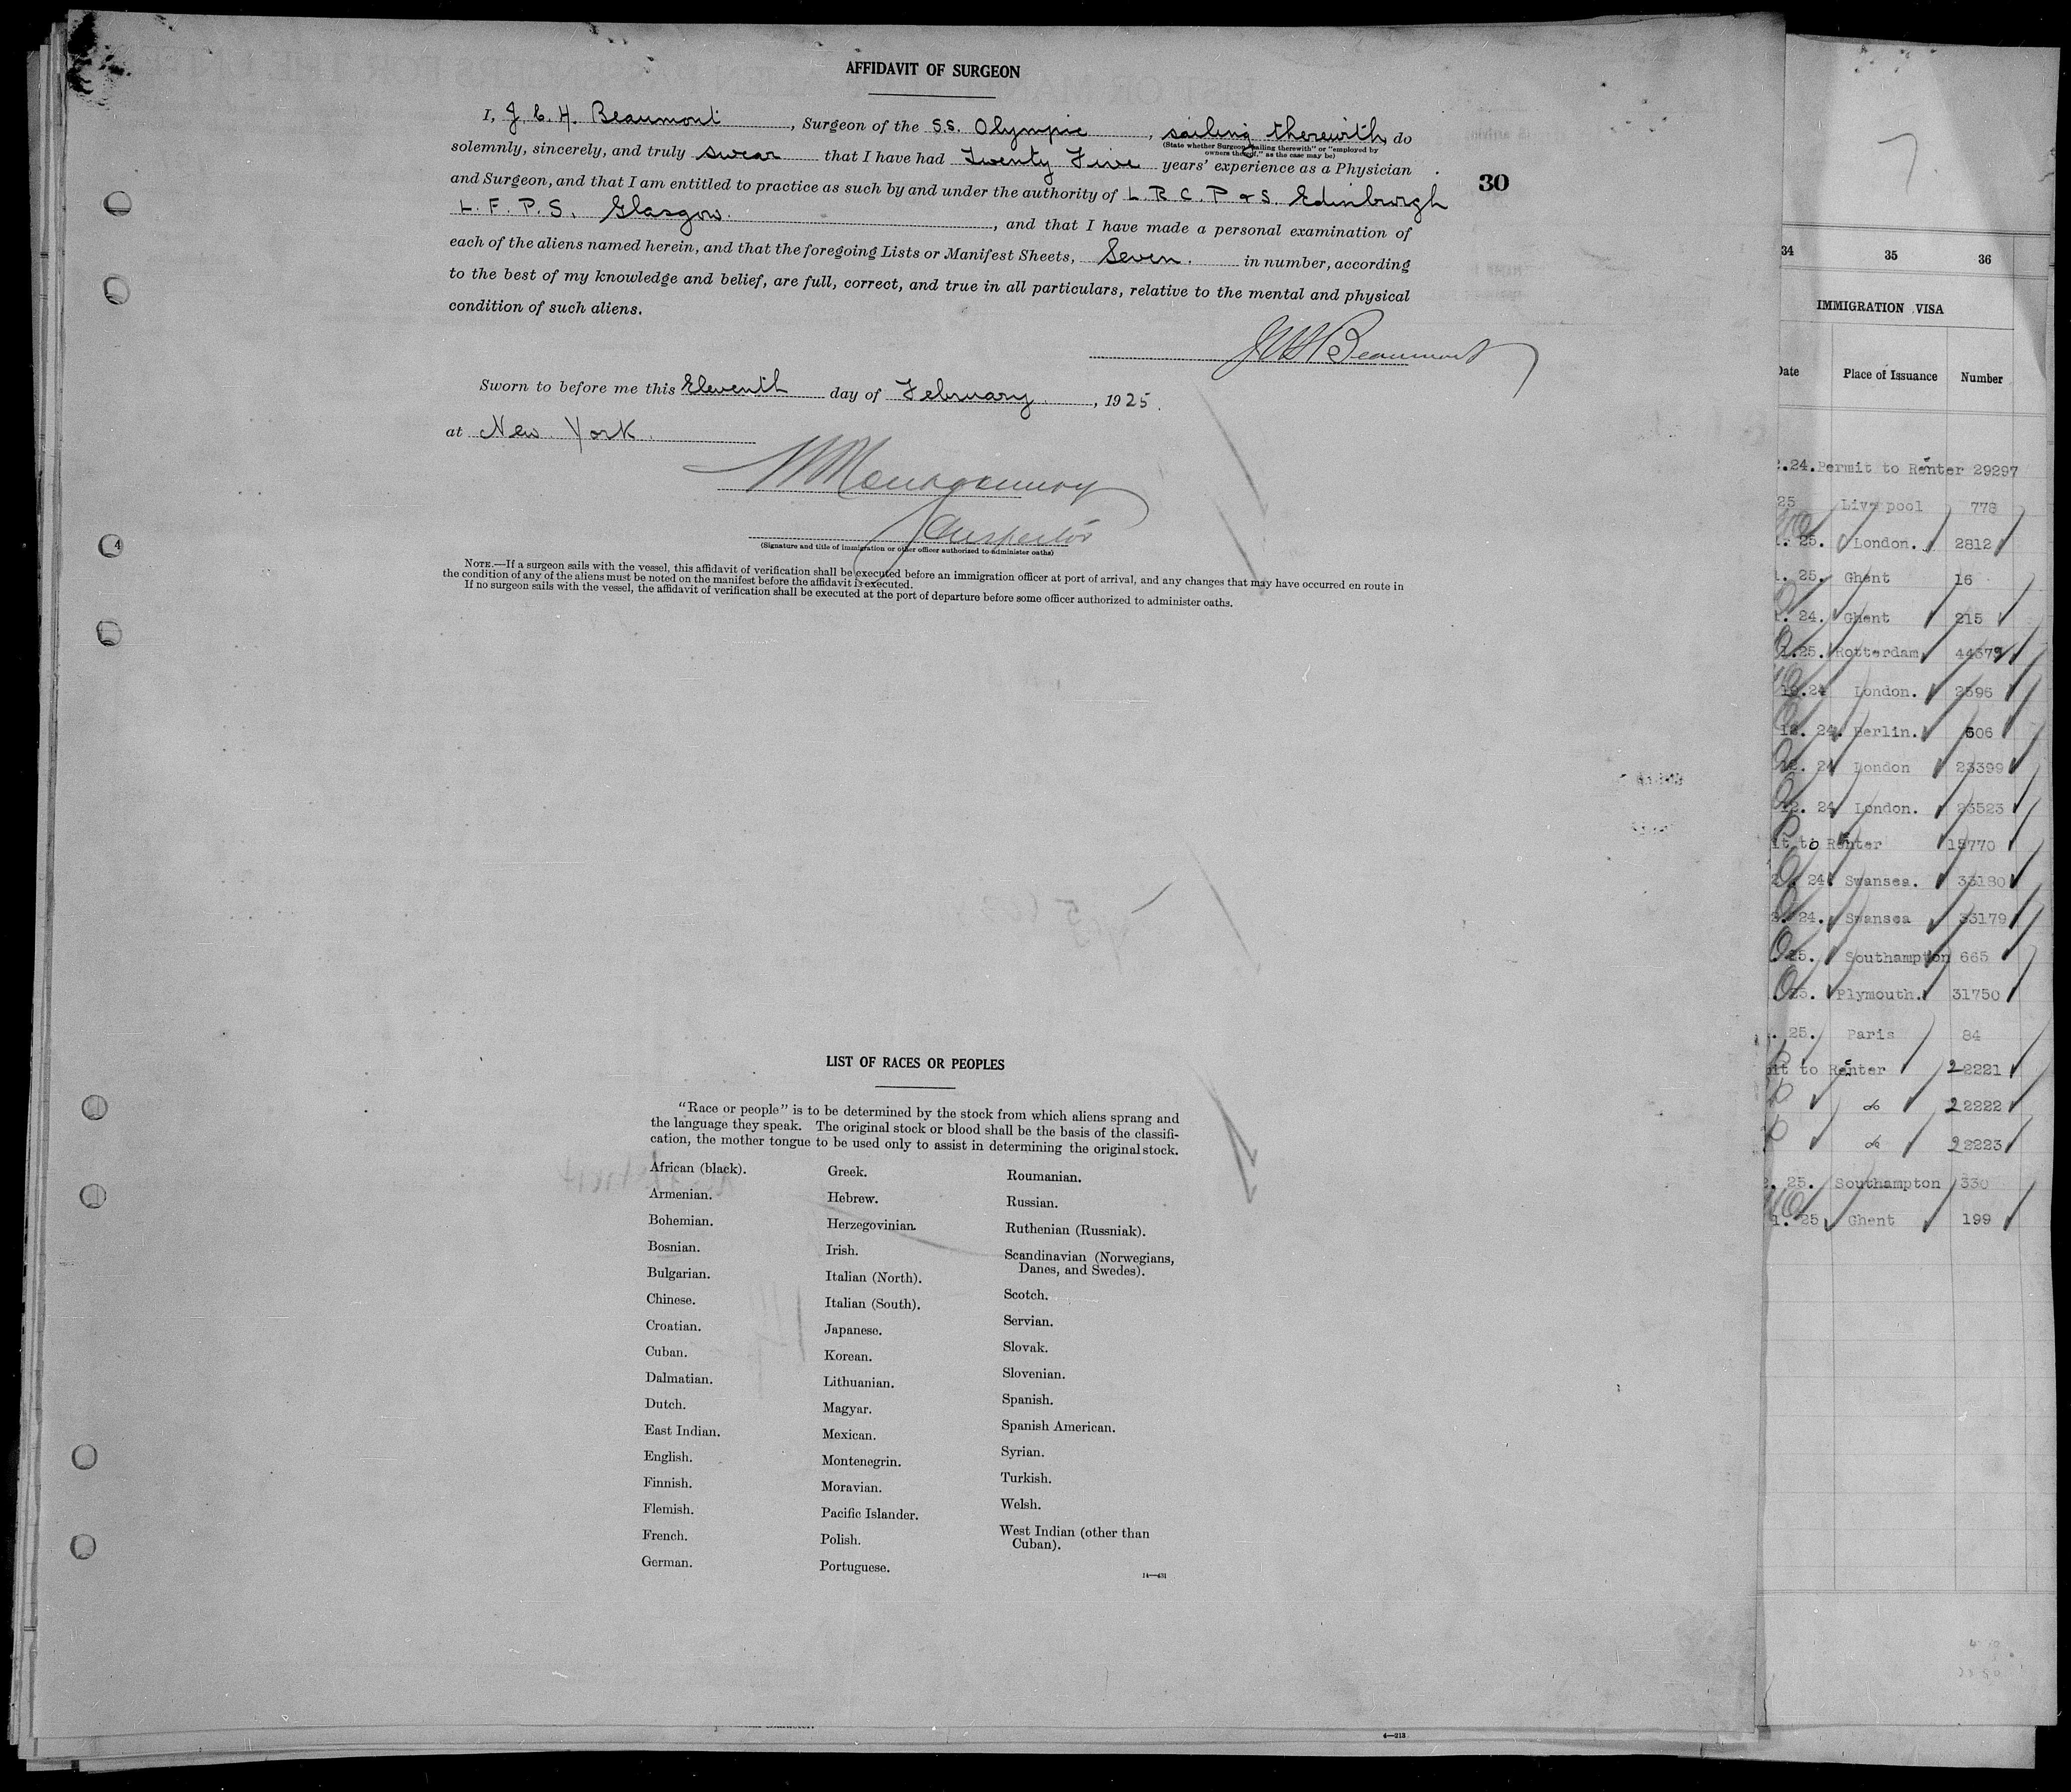 AFFIDAVIT OF SURGEON
I, J. C. H. Beaumont, Surgeon of the S.S. Olympic, sailing therewith, do
(State whether Surgeon "sailing therewith" or "employed by
owners thereof," as the case may be)
solemnly, sincerely, and truly swear that I have had Twenty Five years' experience as a Physician
and Surgeon, and that I am entitled to practice as such by and under the authority of L. R. C. P & S. Edinburgh
L. F. P. S. Glasgow., and that I have made a personal examination of
each of the aliens named herein, and that the foregoing Lists or Manifest Sheets, Seven. in number, according
to the best of my knowledge and belief, are full, correct, and true in all particulars, relative to the mental and physical
condition of such aliens.
30
JCHBeaumont
Sworn to before me this Eleventh day of February, 1925.
at New York.
Montgomery
Inspector
(Signature and title of immigration or other officer authorized to administer oaths)
NOTE.—If a surgeon sails with the vessel, this affidavit of verification shall be executed before an immigration officer at port of arrival, and any changes that may have occurred en route in
the condition of any of the aliens must be noted on the manifest before the affidavit is executed.
If no surgeon sails with the vessel, the affidavit of verification shall be executed at the port of departure before some officer authorized to administer oaths.
LIST OF RACES OR PEOPLES
"Race or people" is to be determined by the stock from which aliens sprang and
the language they speak. The original stock or blood shall be the basis of the classifi-
cation, the mother tongue to be used only to assist in determining the original stock.
African (black).
Armenian.
Bohemian.
Bosnian.
Bulgarian.
Chinese.
Croatian.
Cuban.
Dalmatian.
Dutch.
East Indian.
English.
Finnish.
Flemish.
French.
German.
Greek.
Hebrew.
Herzegovinian.
Irish.
Italian (North).
Italian (South).
Japanese.
Korean.
Lithuanian.
Magyar.
Mexican.
Montenegrin.
Moravian.
Pacific Islander.
Polish.
Portuguese.
Roumanian.
Russian.
Ruthenian (Russniak).
Scandinavian (Norwegians,
Danes, and Swedes).
Scotch.
Servian.
Slovak.
Slovenian.
Spanish.
Spanish American.
Syrian.
Turkish.
Welsh.
West Indian (other than
Cuban).
14—431
4—213
7.
34 35 36
IMMIGRATION VISA
Date Place of Issuance Number
.24. Permit to Renter 29297
25 Liverpool 778
. 25. London. 2812
1. 25. Ghent 16
. 24. Ghent 215
1.25. Rotterdam 44379
10.24 London. 2596
12. 24. Berlin. 606
12. 24 London 23399
12. 24 London. 23523
it to Renter 15770
24. Swansea. 33180
24. Swansea 33179
25. Southampton 665
25. Plymouth. 31750
. 25. Paris 84
it to Renter 22221
do 22222
do 22223
. 25. Southampton 330
1. 25 Ghent 199